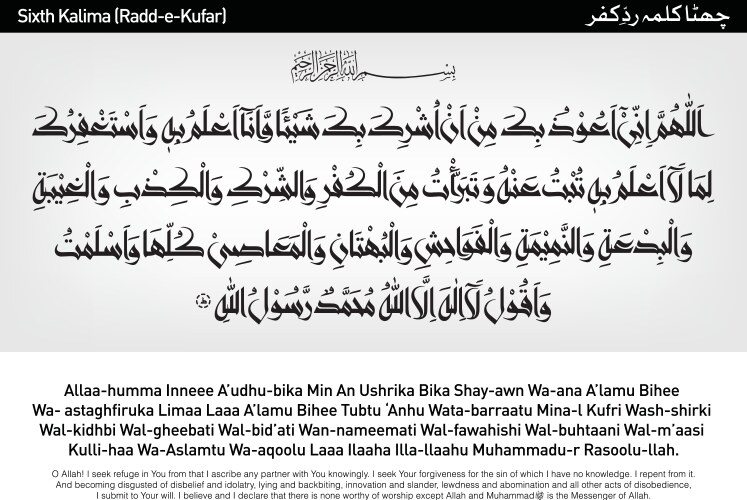 Sixth Kalima (Radd-e-Kufar)
چھٹا کلمہ ردِّ کفر
بِسْمِ اللهِ الرَّحْمٰنِ الرَّحِيْمِ
اَللّٰهُمَّ اِنِّىْۤ اَعُوْذُ بِكَ مِنْ اَنْ اُشْرِكَ بِكَ شَيْئًا وَّاَنَا اَعْلَمُ بِهٖ وَاَسْتَغْفِرُكَ
لِمَا لَاۤ اَعْلَمُ بِهٖ تُبْتُ عَنْهُ وَتَبَرَّأْتُ مِنَ الْكُفْرِ وَالشِّرْكِ وَالْكِذْبِ وَالْغِيْبَةِ
وَالْبِدْعَةِ وَالنَّمِيْمَةِ وَالْفَوَاحِشِ وَالْبُهْتَانِ وَالْمَعَاصِىْ كُلِّهَا وَاَسْلَمْتُ
وَاَقُوْلُ لَاۤ اِلٰهَ اِلَّا اللهُ مُحَمَّدٌ رَّسُوْلُ اللهِ
Allaa-humma Inneee A’udhu-bika Min An Ushrika Bika Shay-awn Wa-ana A’lamu Bihee
Wa- astaghfiruka Limaa Laaa A’lamu Bihee Tubtu ‘Anhu Wata-barraatu Mina-l Kufri Wash-shirki
Wal-kidhbi Wal-gheebati Wal-bid’ati Wan-nameemati Wal-fawahishi Wal-buhtaani Wal-m’aasi
Kulli-haa Wa-Aslamtu Wa-aqoolu Laaa Ilaaha Illa-llaahu Muhammadu-r Rasoolu-llah.
O Allah! I seek refuge in You from that I ascribe any partner with You knowingly. I seek Your forgiveness for the sin of which I have no knowledge. I repent from it.
And becoming disgusted of disbelief and idolatry, lying and backbiting, innovation and slander, lewdness and abomination and all other acts of disobedience,
I submit to Your will. I believe and I declare that there is none worthy of worship except Allah and Muhammadﷺ is the Messenger of Allah.